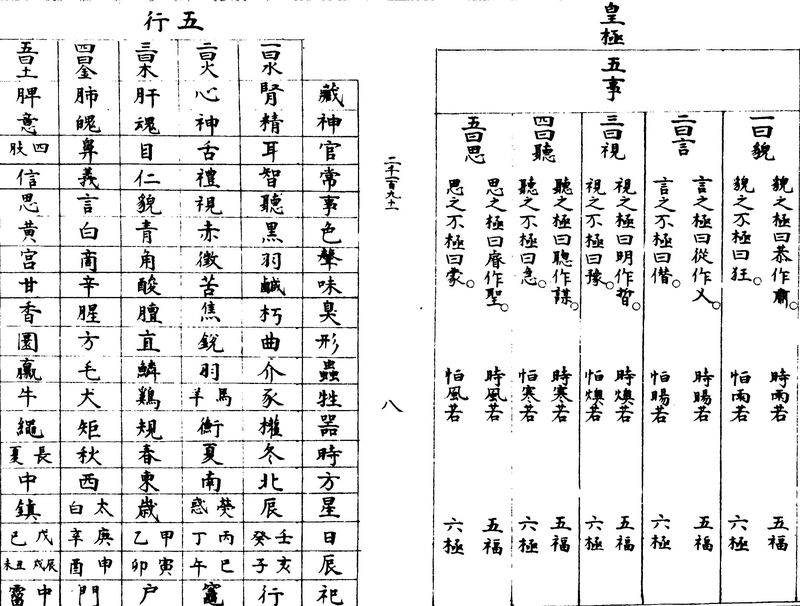 皇極
五事
一曰貌
貌之極曰恭作肅。時雨若 五福
貌之不極曰狂。恒雨若 六極
二曰言
言之極曰從作乂。時暘若 五福
言之不極曰僭。恒暘若 六極
三曰視
視之極曰明作哲。時燠若 五福
視之不極曰豫。恒燠若 六極
四曰聽
聽之極曰聰作謀。時寒若 五福
聽之不極曰急。恒寒若 六極
五曰思
思之極曰睿作聖。時風若 五福
思之不極曰蒙。恒風若 六極
八
五行
藏 神 官 常 事 色 聲 味 臭 形 蟲 牲 器 時 方 星 日 辰 祀
一曰水 腎 精 耳 智 聽 黑 羽 鹹 朽 曲 介 豕 權 冬 北 辰 壬癸 亥子 行
二曰火 心 神 舌 禮 視 赤 徵 苦 焦 銳 羽 馬羊 衡 夏 南 熒惑 丙丁 巳午 竈
三曰木 肝 魂 目 仁 貌 青 角 酸 膻 直 鱗 鷄 規 春 東 歲 甲乙 寅卯 户
四曰金 肺 魄 鼻 義 言 白 商 辛 腥 方 毛 犬 矩 秋 西 太白 庚辛 申酉 門
五曰土 脾 意 四肢 信 思 黃 宮 甘 香 圜 臝 牛 繩 長夏 中 鎮 戊己 辰戌丑未 中霤